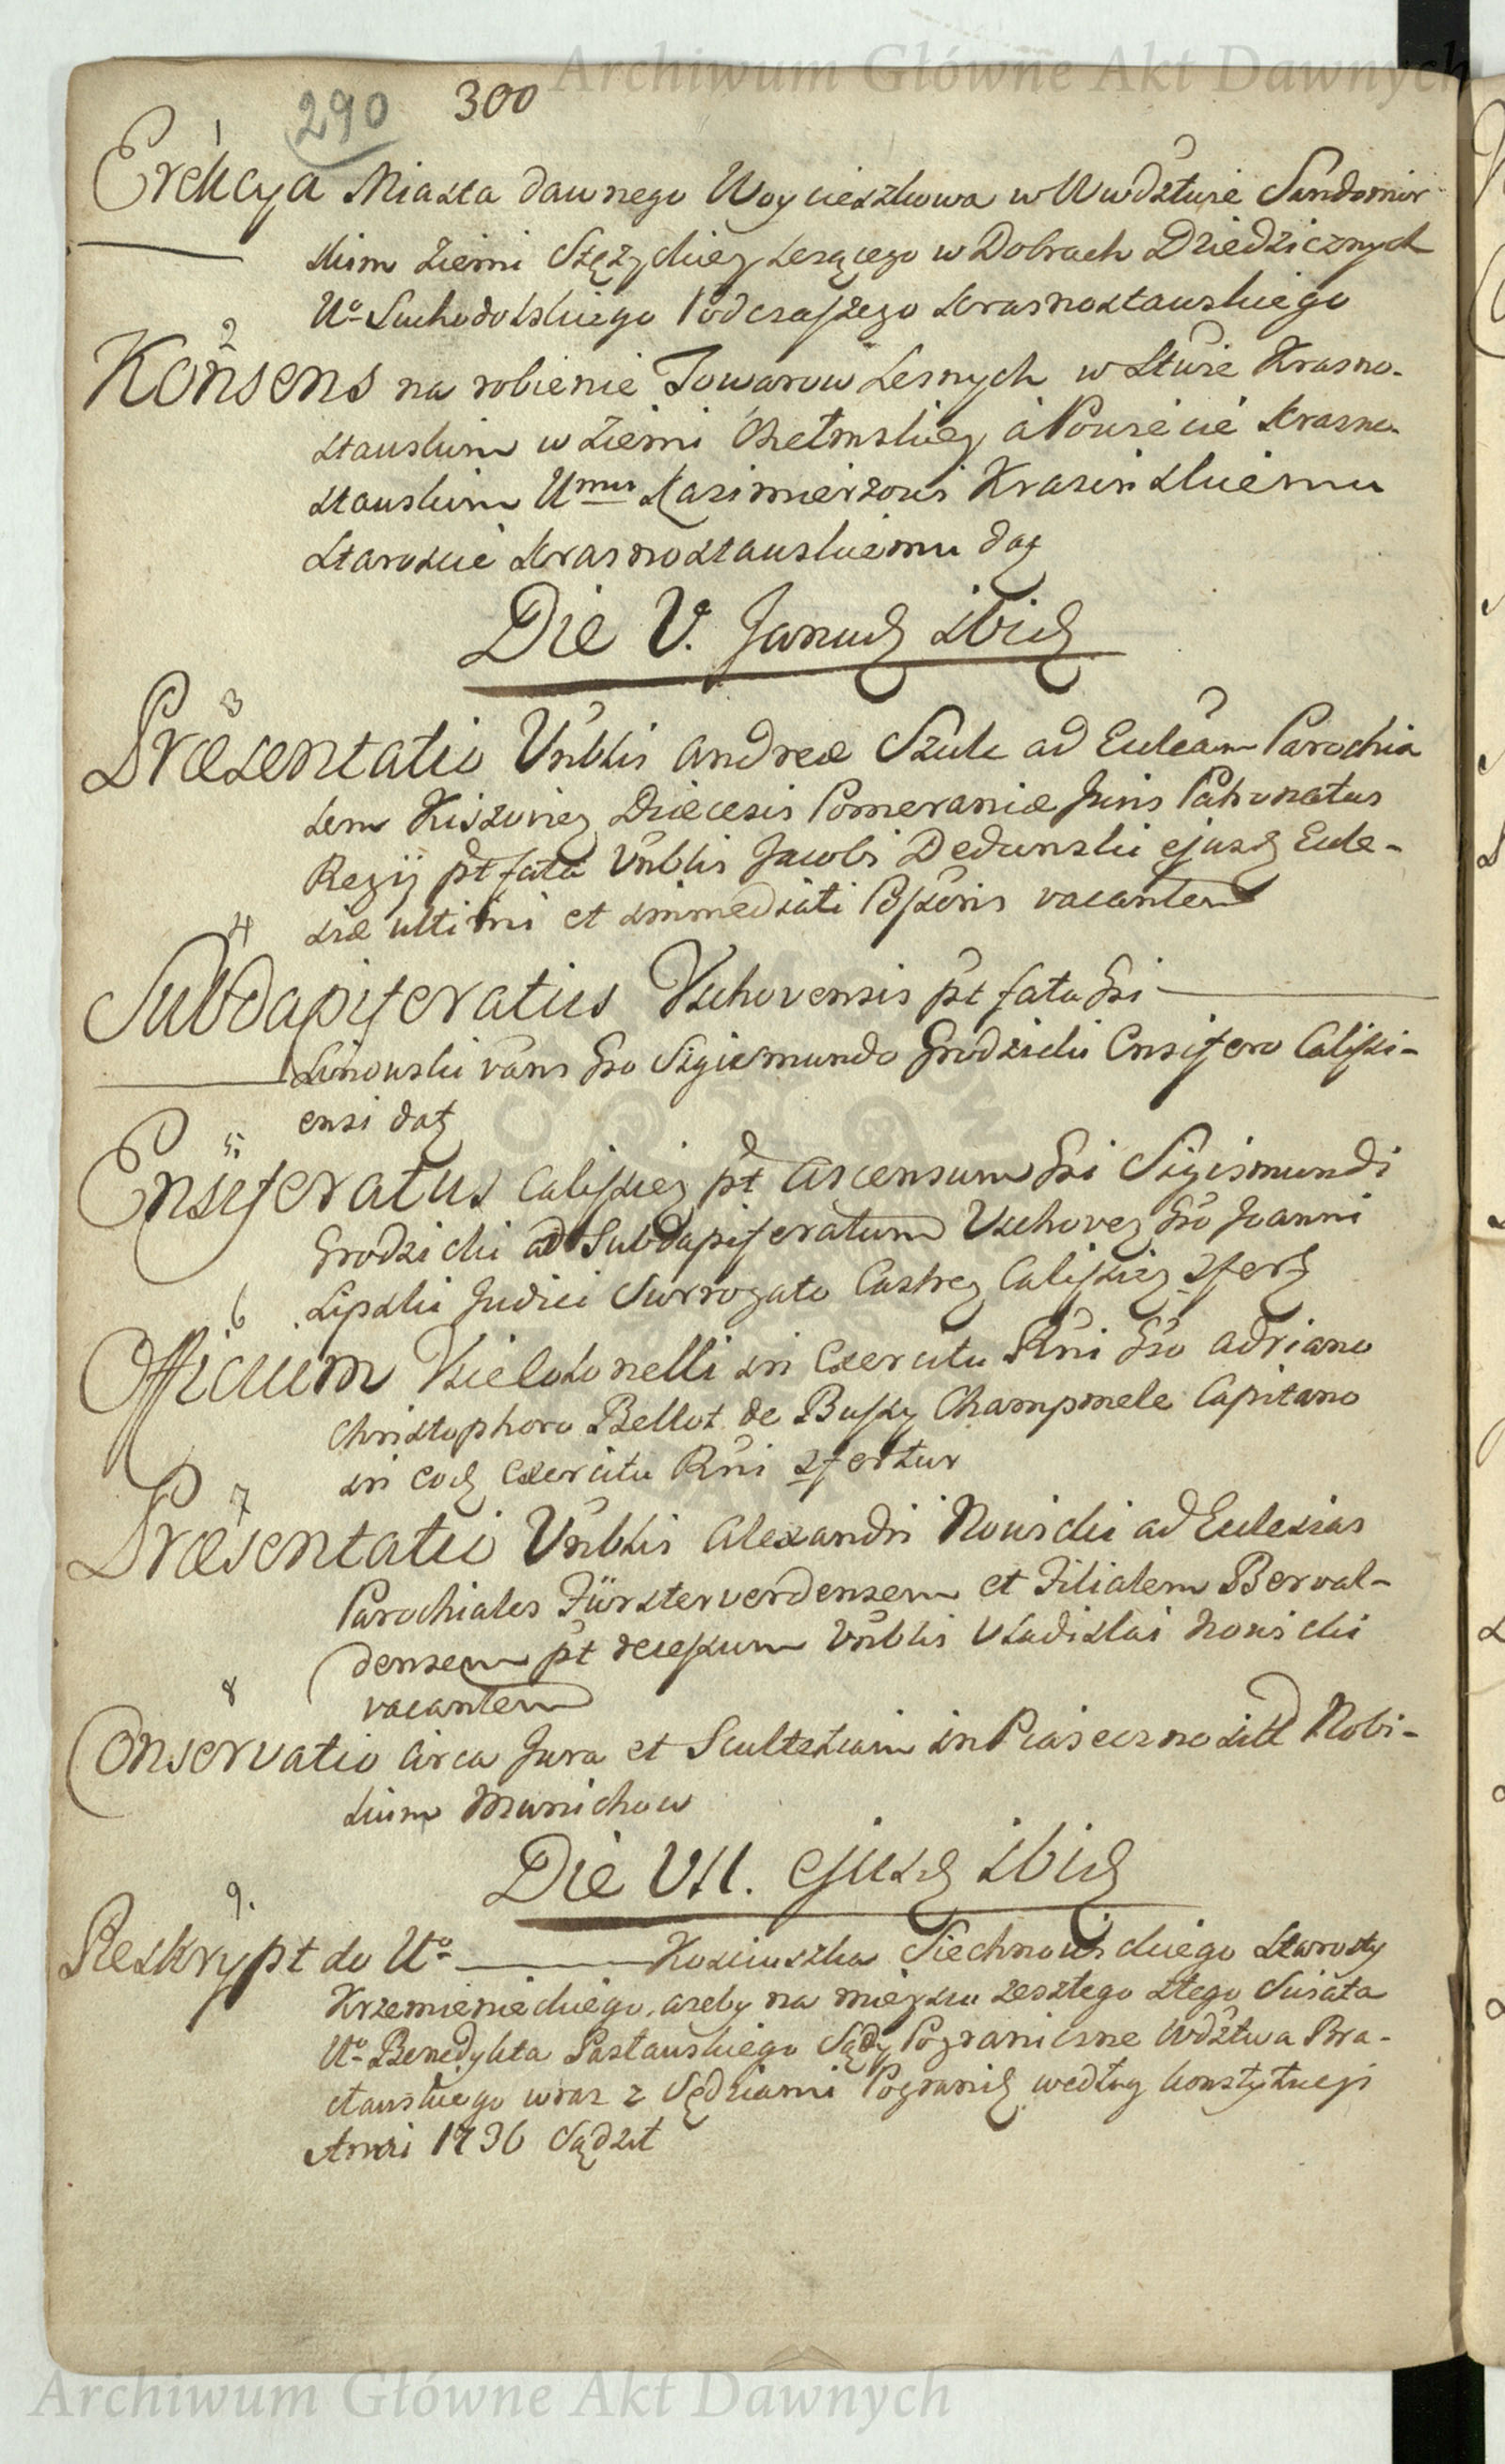 Archiwum Główne Akt Dawnych
290 300
1
Erekcya Miasta dawnego Woycieszkowa w Wwdztwie Sandomir
skim Ziemi Stężyckiey lezącego w Dobrach Dziedzicznych
Uo Suchodolskiego Podczaszego Krasnostawskiego
2
Konsens na robienie Towarow Lesnych w Stwie Krasno-
stawskim w Ziemi Chełmskiey a Powiecie Krasno-
stawskim Umu Kazimierzowi Krasinskiemu
Staroscie Krasnostawskiemu
Die V. Januarii ibid
3
Præsentatio Vnblis Andreæ Szulc ad Eccleam Parochia
lem Kiszovien Diæcesis Pomeraniæ Juris Patronatus
Regij pt fata Vnblis Jacobi Dedunski ejusd Eccle-
siæ ultimi et immediati Possoris vacantem
4
Subdapiferatus Vschovensis pt fata Gsi
Linowski vans Gso Sigismundo Grodzicki Ensifero Calissi-
ensi
5
Ensiferatus Calissien pt Ascensum Gsi Sigismundi
Grodzicki ad Subdapiferatum Vschoven Gso Joanni
Lipski Judici Surrogato Castren Calissien
6
Officium Vicecolonelli in Exercitu Rni Gso Adriano
Christophoro Bellot de Bussy Champmele Capitano
in eod Exercitu Rni
7
Præsentatio Vnblis Alexandri Nowicki ad Ecclesias
Parochiales Fürsterverdensem et Filialem Berval-
densem pt decessum Vnblis Vladislai Nowicki
vacantem
8
Conservatio circa Jura et Scultetiam in Piaseczno Nobi-
lium Munichow
Die VII. ejusd ibid
9.
Reskrypt do Uo Kosciuszka Siechnowickiego Starosty
Krzemienieckiego, azeby na mieyscu zeszłego z tego Swiata
Uo Benedykta Sąsdy Pograniczne Wdztwa Bra-
cławskiego wraz z Sędziami Pogranich według konstytucyi
Anni 1736 Sądził
Archiwum Główne Akt Dawnych